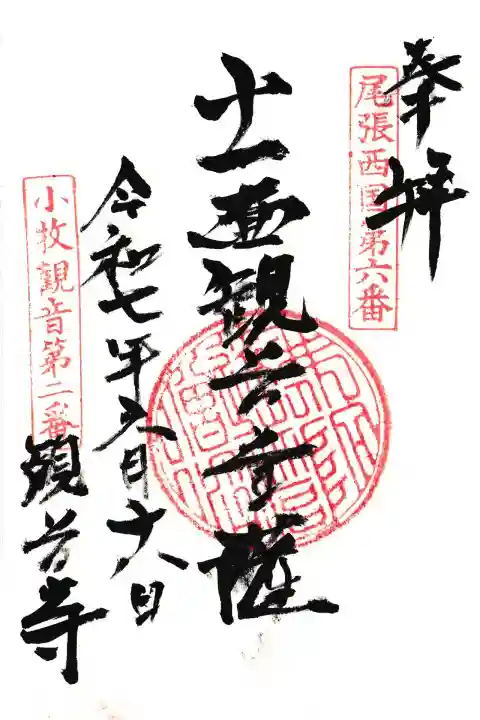 奉拝
尾張西国第六番
十一面観音菩薩
令和七年五月十八日
小牧觀音第二番